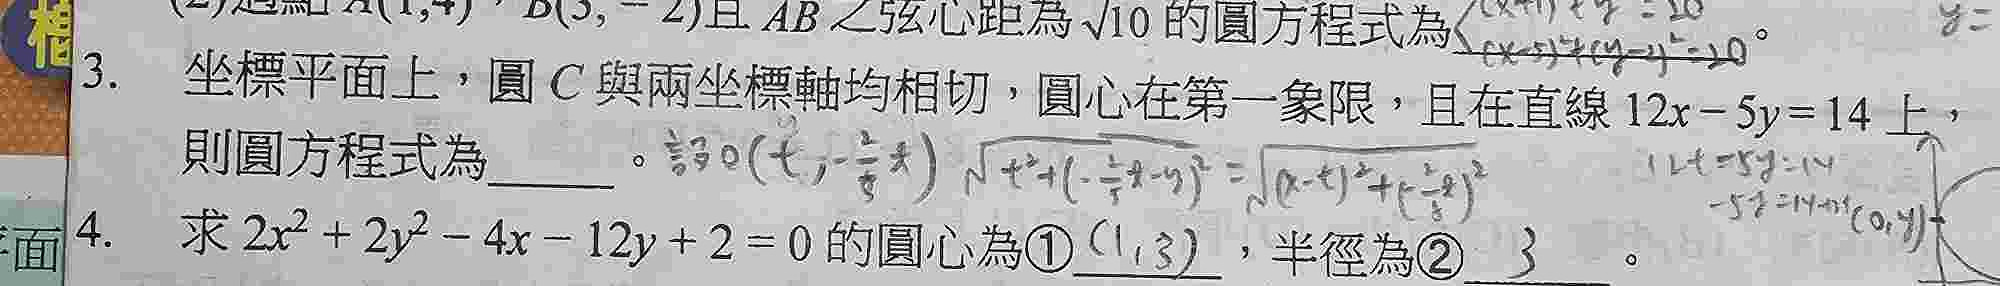 (2)過點 A(1,4)，B(3,－2)且 AB 之弦心距為 √10 的圓方程式為 (x+1)²+y²=20
(x-5)²+(y-2)²=20 。
y=
3. 坐標平面上，圓 C 與兩坐標軸均相切，圓心在第一象限，且在直線 12x－5y＝14 上，
則圓方程式為______。設O(t,-\frac{2}{5}t) √t²+(-\frac{2}{5}t-y)² = √(x-t)²+(-\frac{2}{5}t)²
12t-5y=14
(0,y)
4. 求 2x²＋2y²－4x－12y＋2＝0 的圓心為①(1,3)，半徑為② 3 。
面